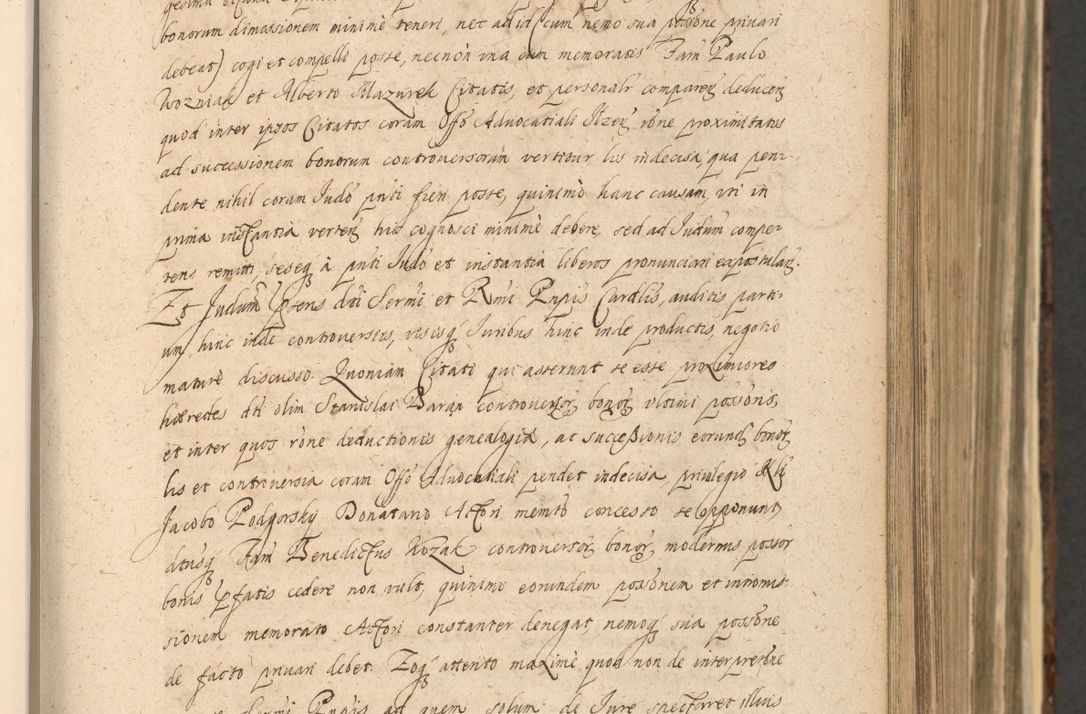 bonorum dimissionem minimè teneri, nec ad id (cum nemo sua possōne privari
debeat) cogi et compelli posse, necnon una cum memoratis Fam̄ Paulo
Wozniak et Alberto Mazurek Citatis, et personalr̄ comparen̄ deducen̄
quod inter ipsos Citatos coram Offō Advocatiali Rzeḡ rōne proximitatis
ad successionem bonorum controversorum vertitur lis indecisa, qua pen-
dente nihil coram Judō pnti fieri posse, quinimò hanc causam, uti in
prima instantia verten̄ hic cognosci minimè debere, sed ad Judum̄ compe-
tens remitti, seseq à pnti Judō et instantia liberos pronunciari expostulan̄.
Et Judum̄ pn̄tens dti Sermi et Rmi Pnpis Cardlis, auditis parti-
um hinc inde controversiis, visisq Juribus hinc inde productis, negotio
maturè discusso. Quoniam Citati qui asserunt se esse proximiores
hæredes dti olim Stanislai Baran controversor bonor ultimi possōris,
et inter quos rōne deductionis genealogiæ, ac successionis eorund bonor
lis et controversia coram Offō Advocatiali pendet indecisa, privilegio
Jacobo Podgorsky Donatario Actori memtō concesso se opponunt,
dtusq Fam̄ Benedictus Kozak controversor bonor modernus possor
bonis pfatis cedere non vult, quinimo eorundem possōnem et intromis-
sionem memorato Actori constanter denegat, nemoq sua possōne
de facto privari debet. Eoq attento maximè quod non de interpretōne
Sermi Pnpis ad quem solum de Jure spectaret illius